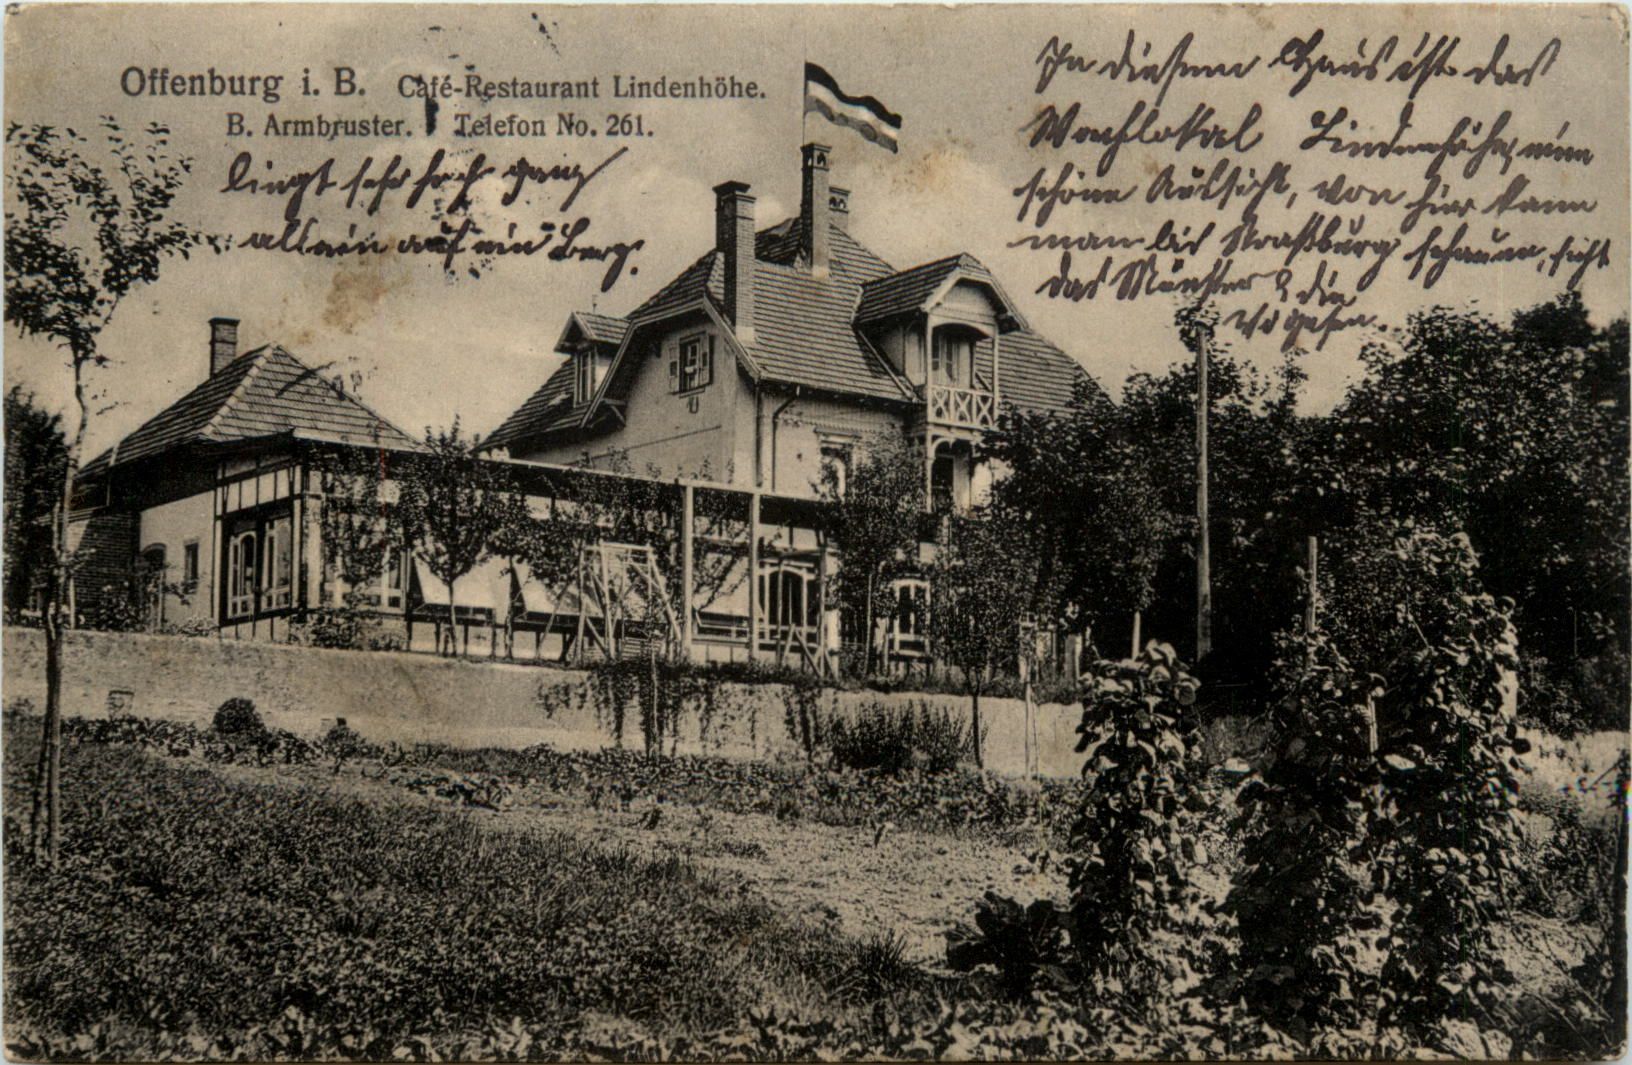 Offenburg i. B. Café-Restaurant Lindenhöhe.
B. Armbruster. Telefon No. 261.
liegt sehr hoch ganz
allein auf ein Berg.
In diesem Haus ist das
Lindenhöhe, eine
schöne Aussicht, von hier kann
man bis Straßburg schauen, sieht
das Münster & die
Vogesen.